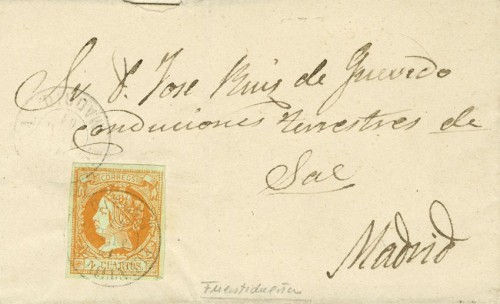 Sr. D. Jose Ruis de Quevedo
conduciones terrestres de
Sal
Madrid
CORREOS
4 CUARTOS
Fuentidueña